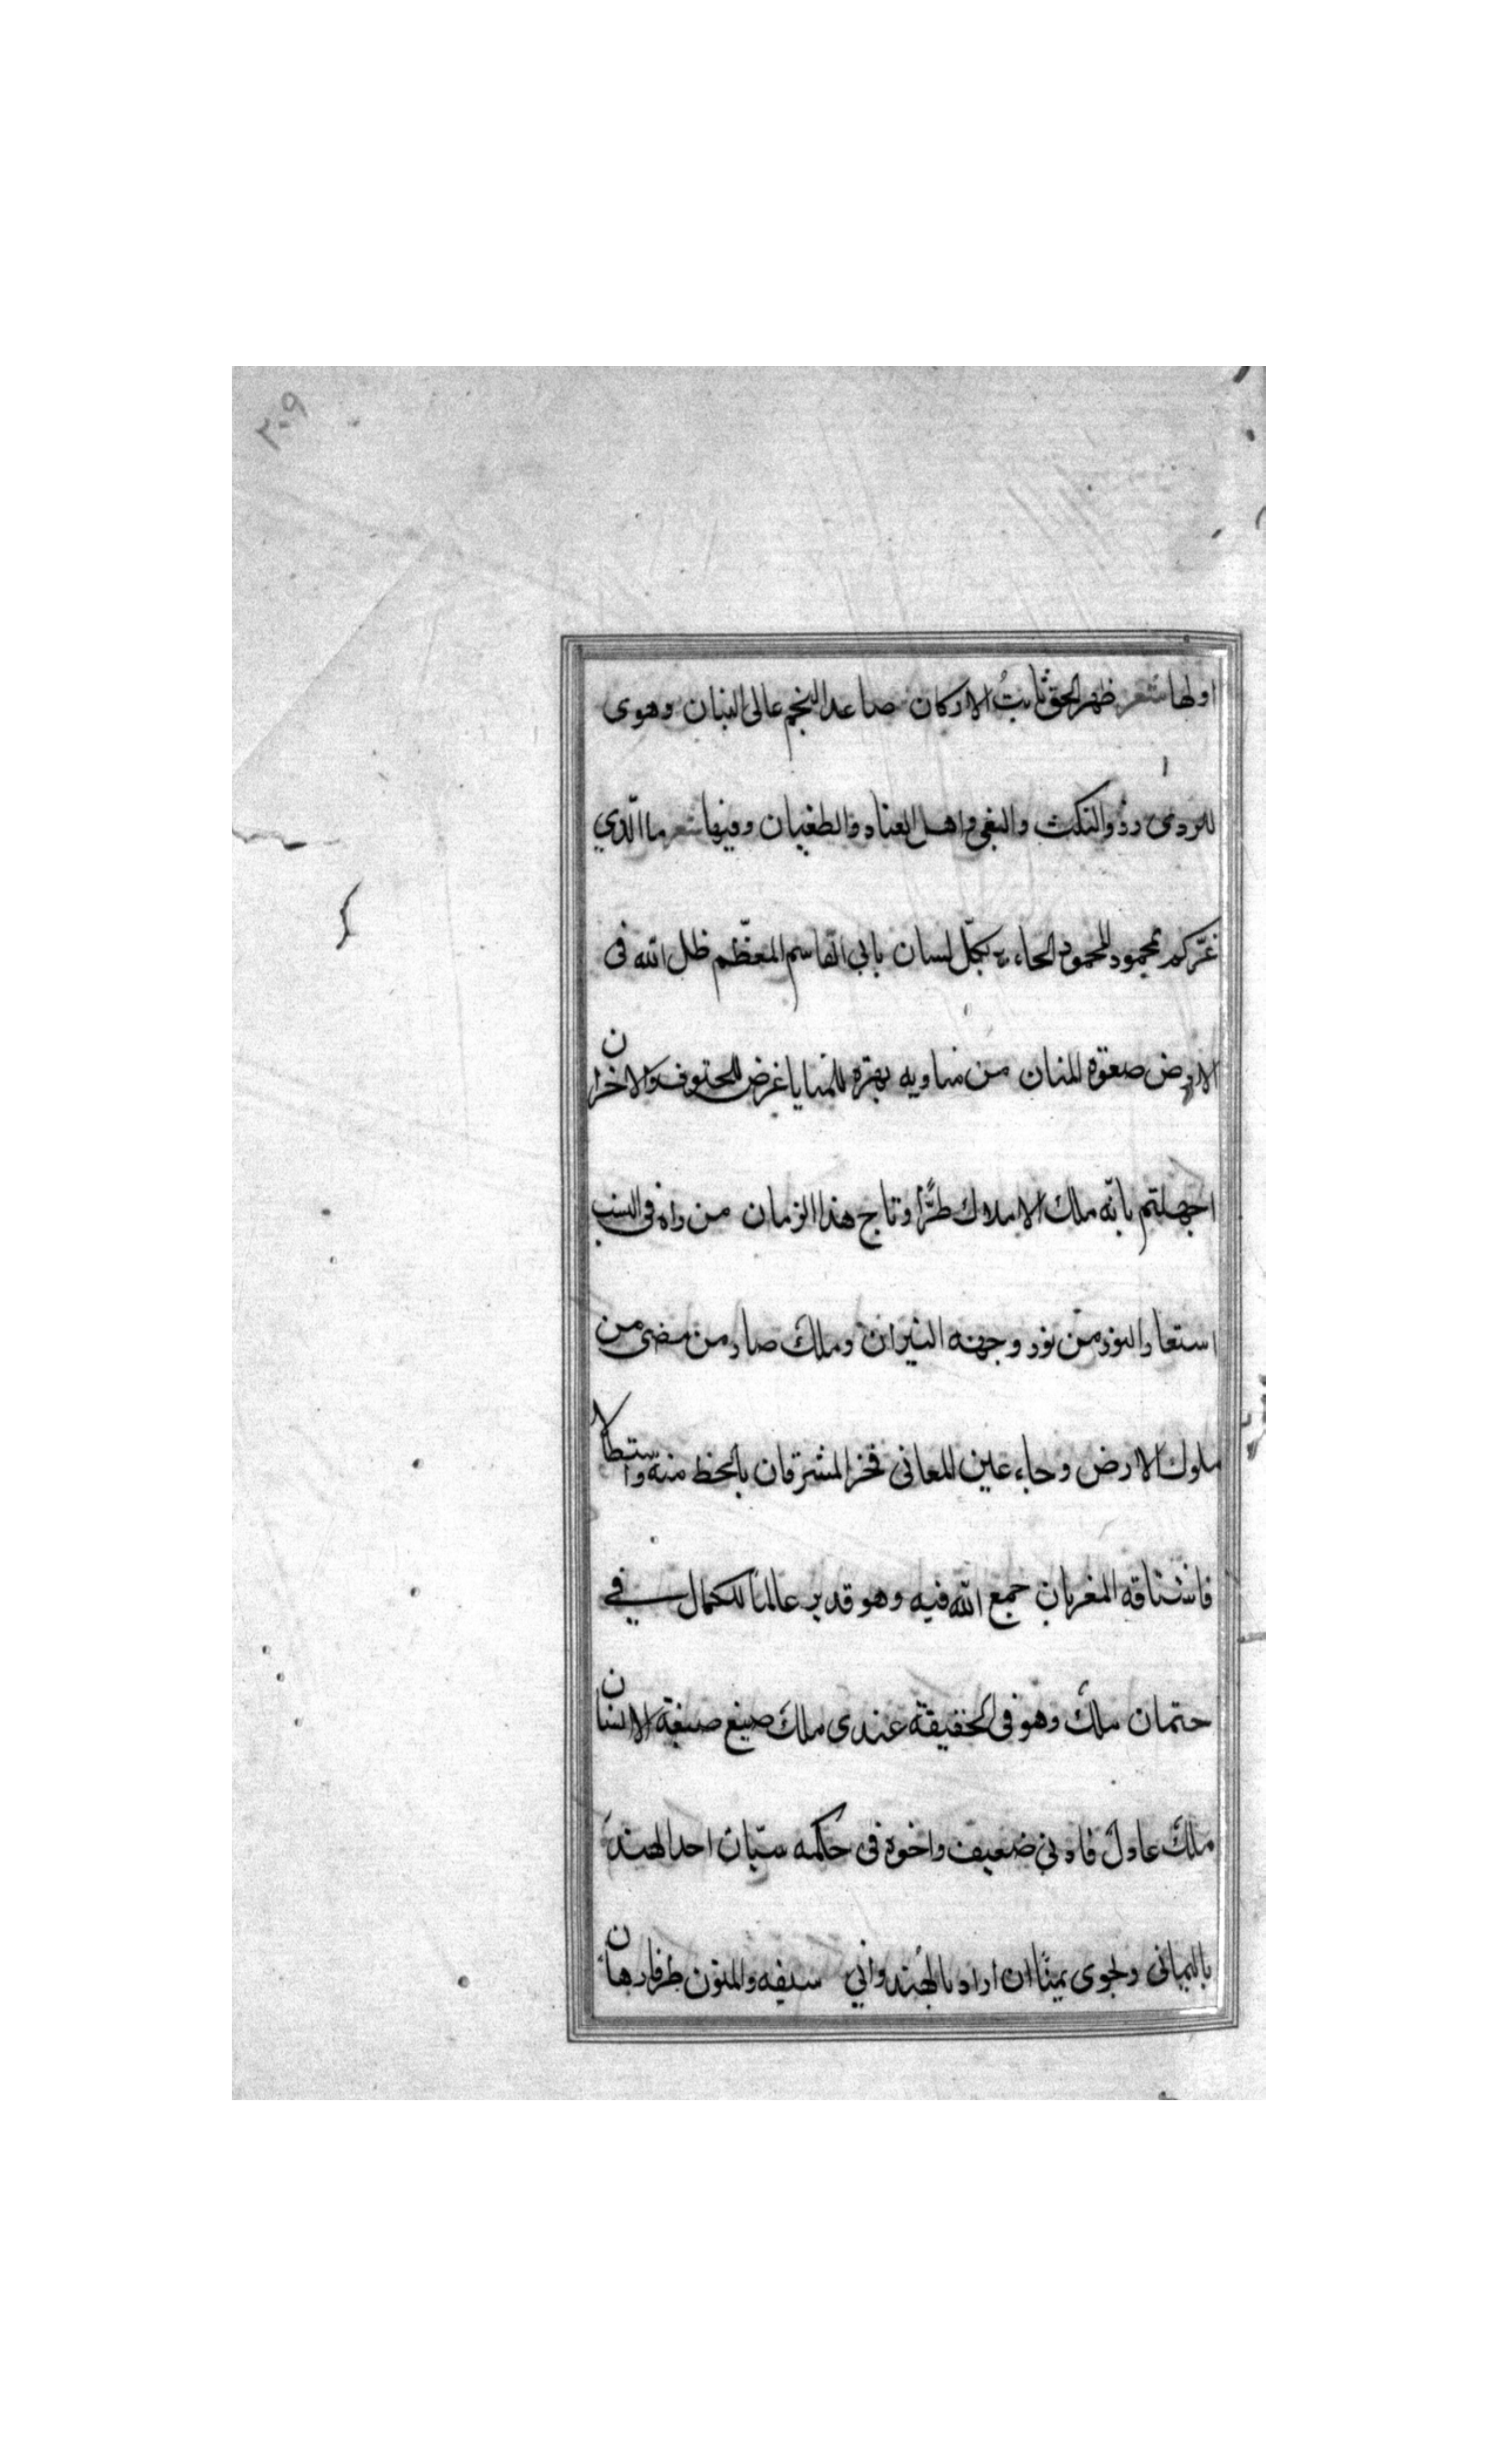 ٢٠٩
اولها شعر ظهر الحق ثابتُ الاركان صاعد النجم عالى البنيان وهوى
للردى ذوو النكث والبغى واهل العناد والطغيان وفيها شعر ما الّذي
غرّكم بمحمود المحمود بكلّ لسان بابى القاسم المعظّم ظل الله فى
الارض صفوة المنان من يناويه للمنايا غرض للحتوف والاحزان
اجهلتم بانّه ملك الاملاك طرًّا وتاج هذا الزمان من راه فى النسب
استعار النور من نور وجهه النيران وملك صار من مضى من
ملوك الارض وجاء عين المعانى فخر المشرقان بالحظ منه واستطالا
فاشتاقه المغربان جمع الله فيه وهو قدير عالمًا للكمال في
جثمان ملك وهو فى الحقيقة عندى ملك صيغ صيغة الانسان
ملك عادل ضعيف واخوه فى حكمه سيّان احد الهند
باليمانى ان اراد بالهندواني سيفه والمنون طرفا رهان